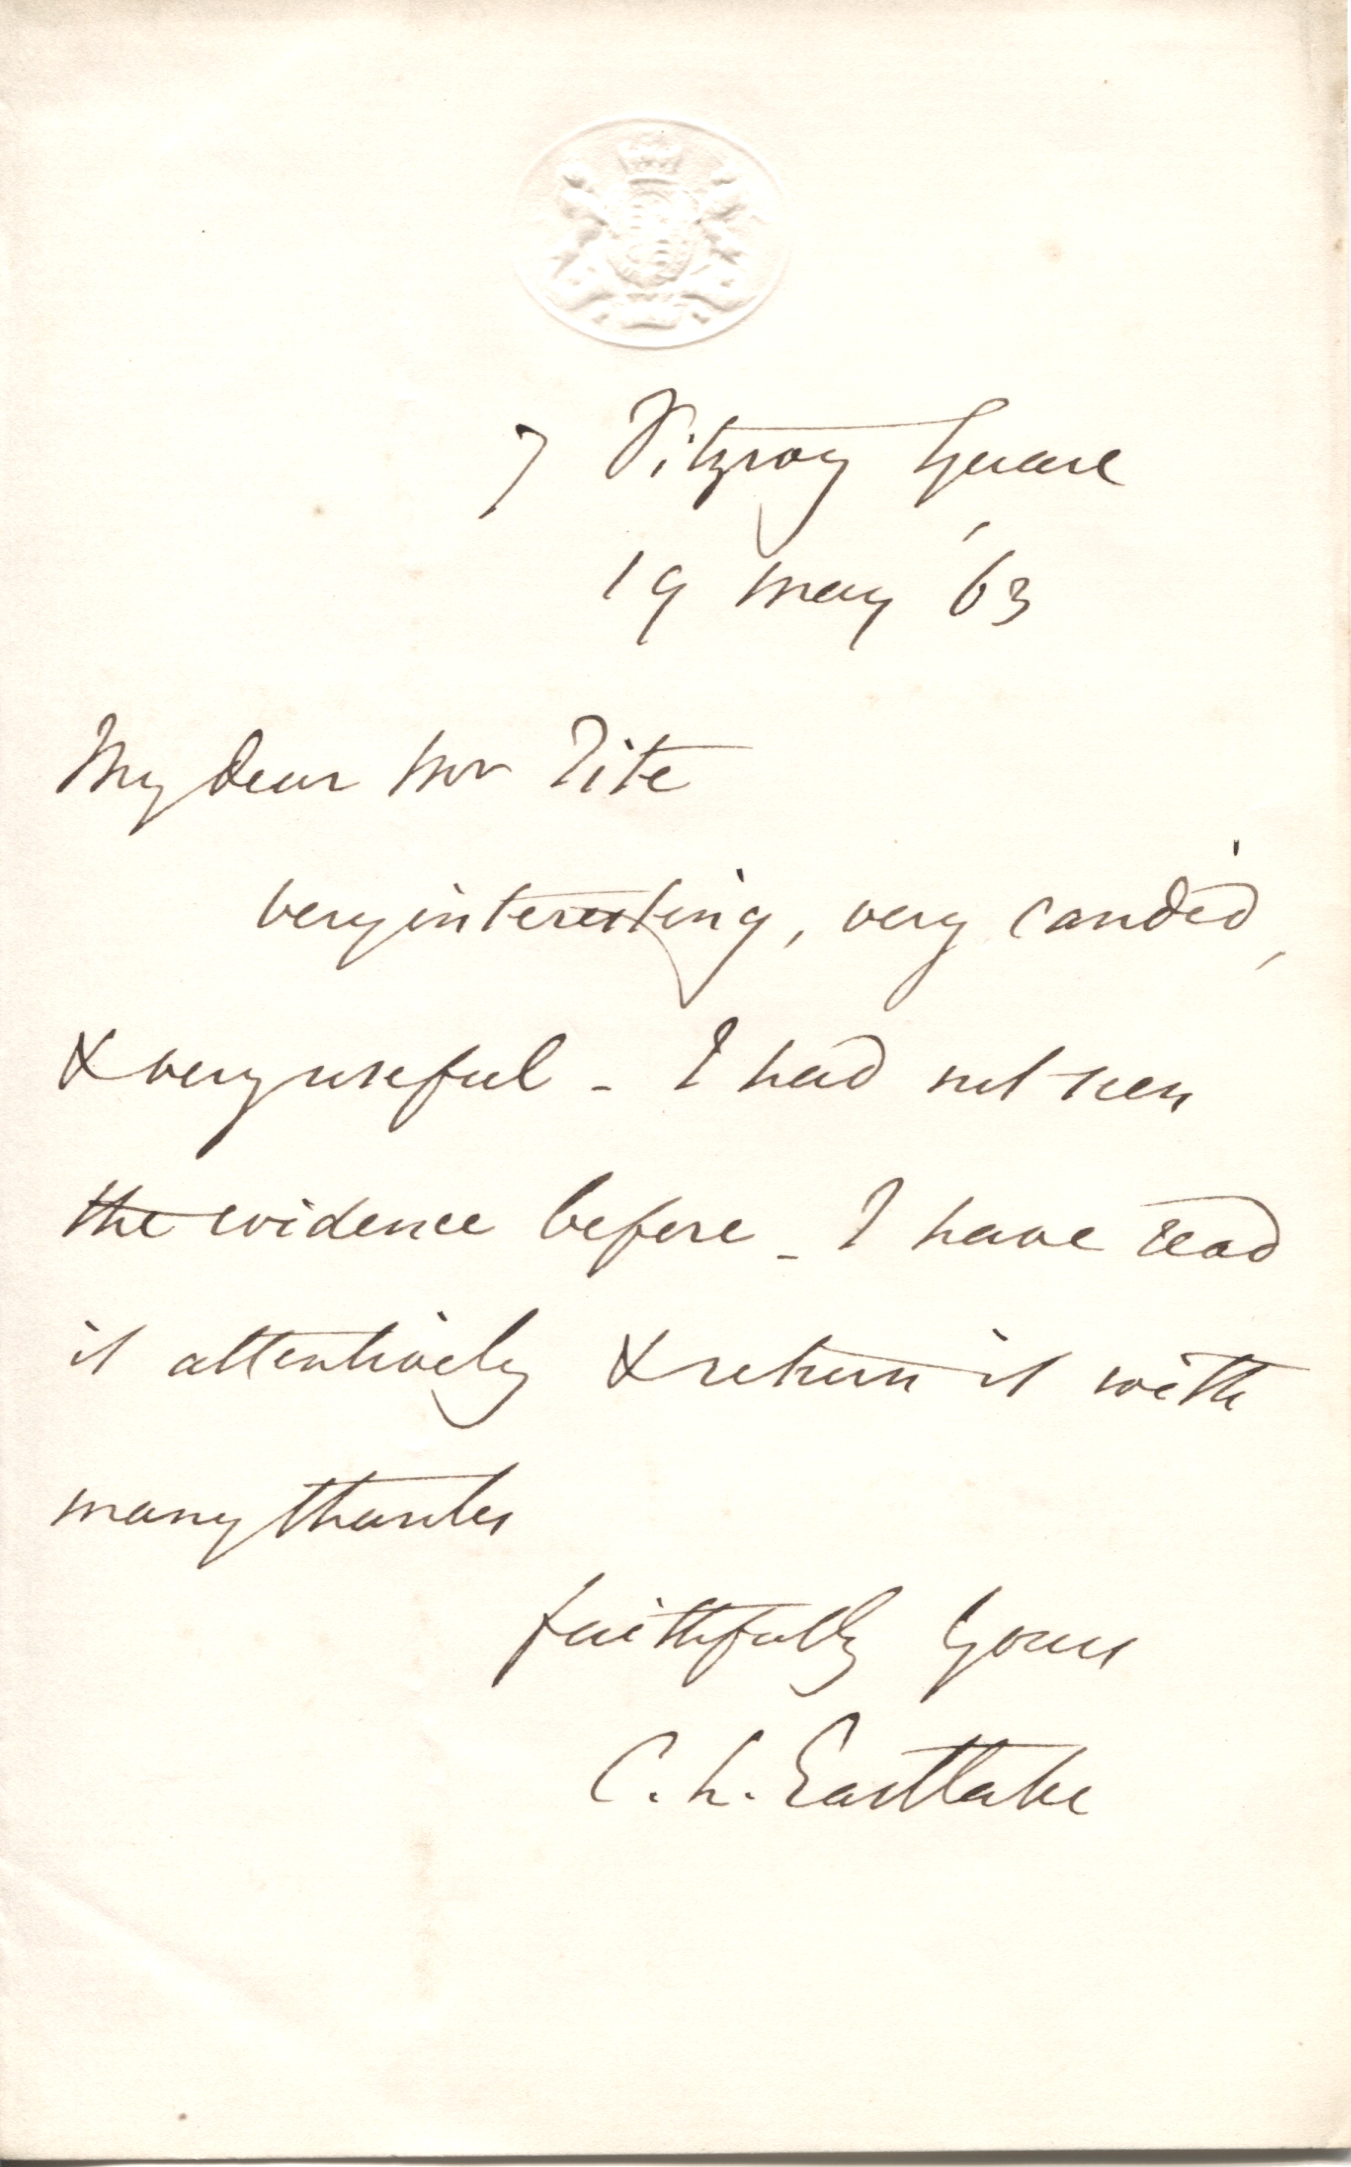 7 Fitzroy Square
19 May '63
My dear Mr Tite
very interesting, very candid,
& very useful - I had not seen
the evidence before - I have read
it attentively & return it with
many thanks
faithfully yours
C. L. Eastlake